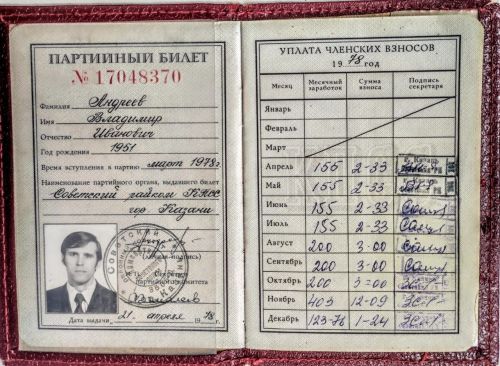 ПАРТИЙНЫЙ БИЛЕТ
№ 17048370
Фамилия Андреев
Имя Владимир
Отчество Иванович
Год рождения 1951
Время вступления в партию март 1978 г.
Наименование партийного органа, выдавшего билет
Советский райком КПСС
гор. Казани
(личная подпись)
Секретарь
партийного комитета
Дата выдачи 21 апреля 1978
УПЛАТА ЧЛЕНСКИХ ВЗНОСОВ
1978 год
Месяц Месячный заработок Сумма взноса Подпись секретаря
Январь
Февраль
Март
Апрель 155 2-33
Май 155 2-33
Июнь 155 2-33
Июль 155 2-33
Август 200 3-00
Сентябрь 200 3-00
Октябрь 200 3-00
Ноябрь 403 12-09
Декабрь 123-76 1-24